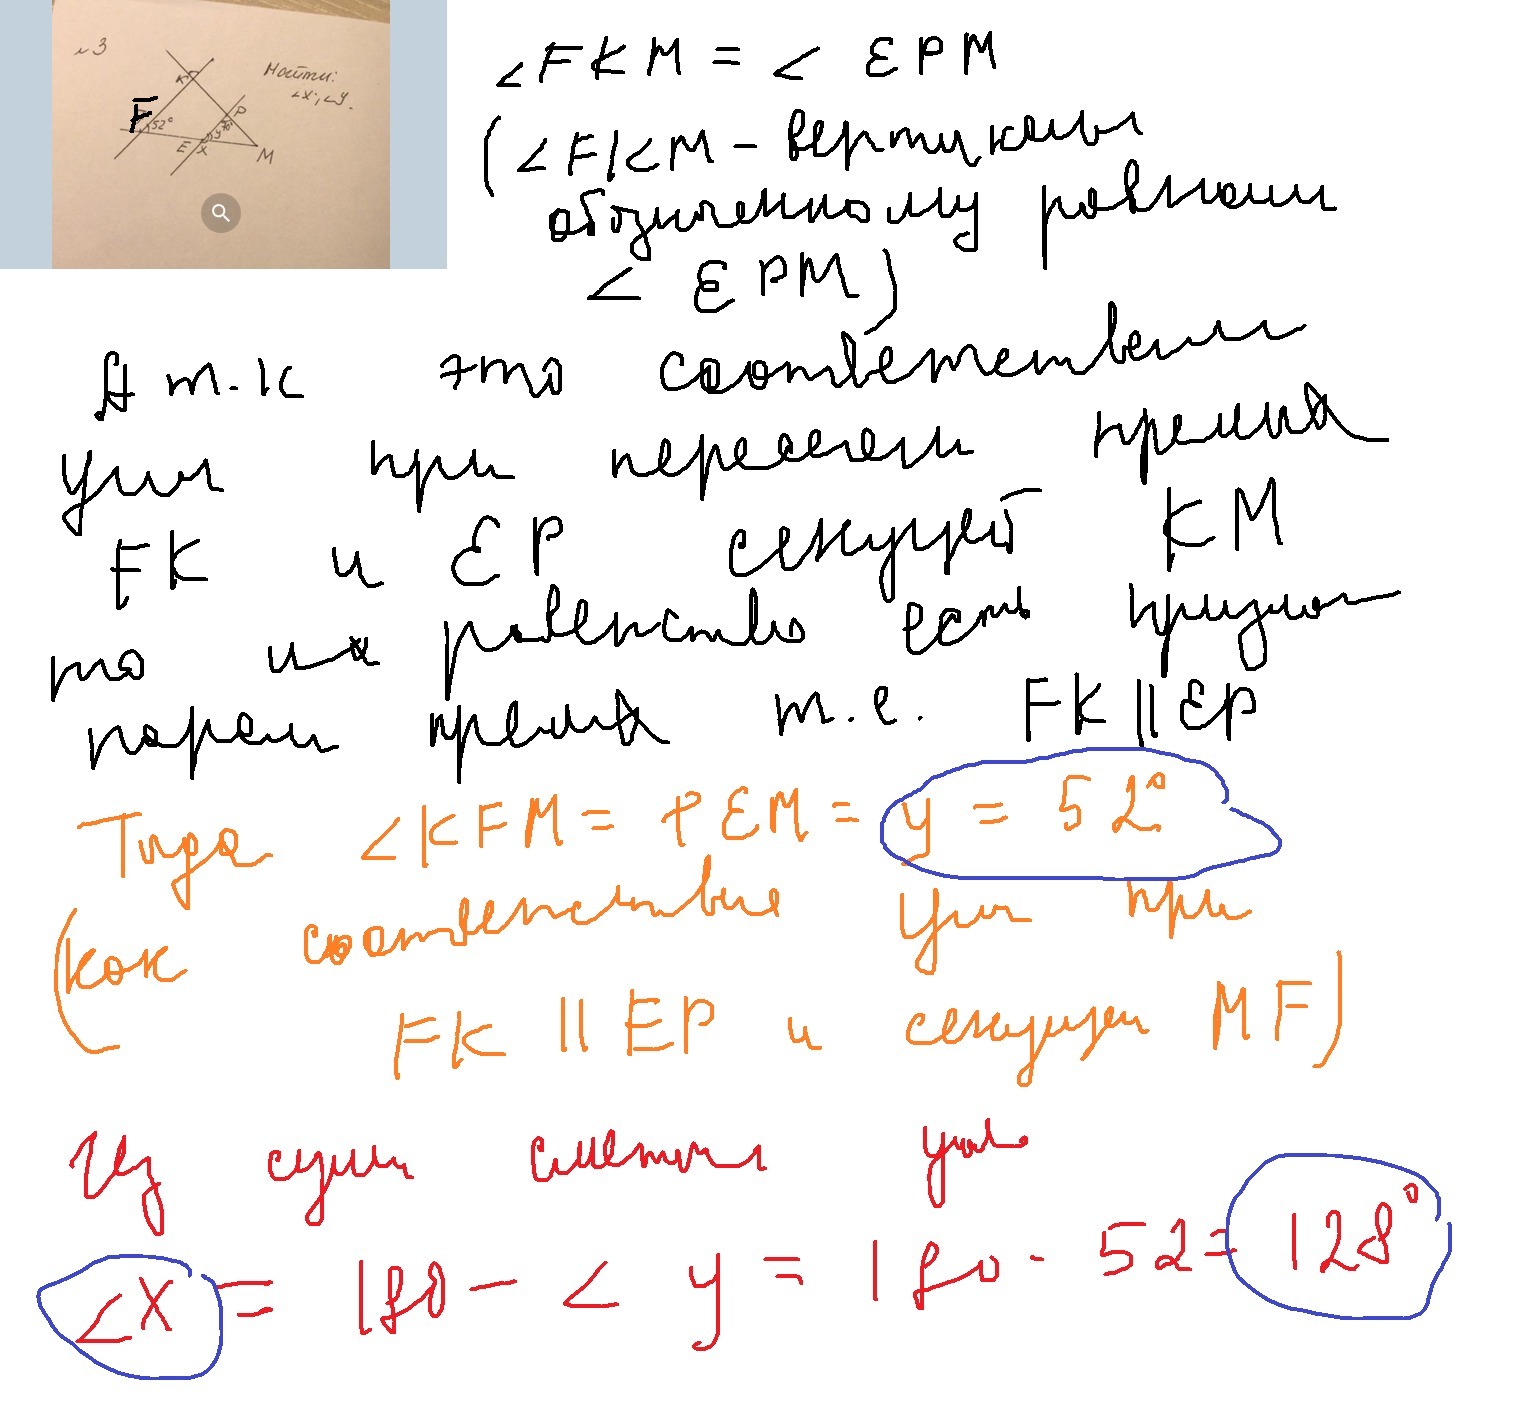 №3
Найти:
∠x; ∠y.
K
F
52°
P
y
E
x
M
∠FKM = ∠ EPM
(∠FKM - вертикальн
обозначенному равном
∠ EPM)
А т.к это соответствен
угл при пересечен прямых
FK и EP секущей KM
то их равенство есть признак
парал прямых т.е. FK || EP
Тогда ∠KFM = PEM = y = 52°
(как соответствие угл при
FK || EP и секущей MF)
Из сумм смежных угл
∠X = 180 - ∠ y = 180 - 52 = 128°